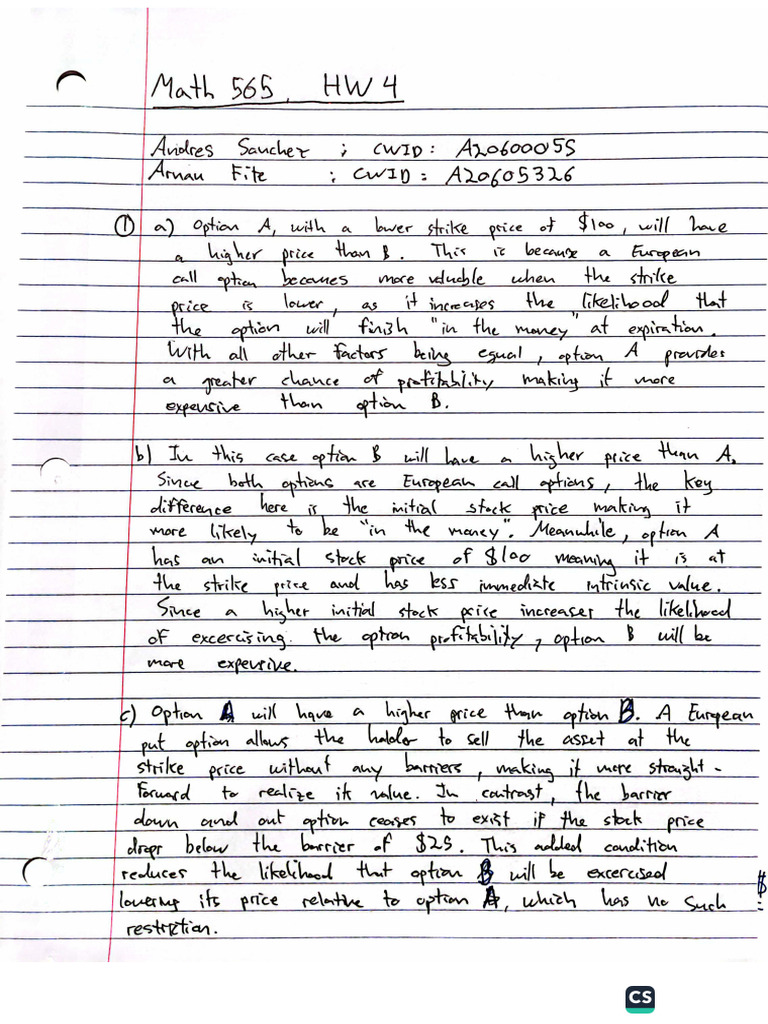 Math 565, HW 4
Andres Sanchez ; CWID: A20600055
Arnau Fite ; CWID: A20605326
① a) Option A, with a lower strike price of $100, will have
a higher price than B. This is because a European
call option becomes more valuable when the strike
price is lower, as it increases the likelihood that
the option will finish "in the money" at expiration.
With all other factors being equal, option A provides
a greater chance of profitability making it more
expensive than option B.
b) In this case option B will have a higher price than A.
Since both options are European call options, the key
difference here is the initial stock price making it
more likely to be "in the money". Meanwhile, option A
has an initial stock price of $100 meaning it is at
the strike price and has less immediate intrinsic value.
Since a higher initial stock price increases the likelihood
of excercising the option profitability, option B will be
more expensive.
c) Option A will have a higher price than option B. A European
put option allows the holder to sell the asset at the
strike price without any barriers, making it more straight-
forward to realize it value. In contrast, the barrier
down and out option ceases to exist if the stock price
drops below the barrier of $25. This added condition
reduces the likelihood that option B will be excercised
lowering its price relative to option A, which has no such
restriction.
$
CS